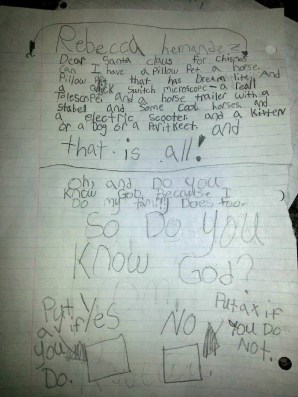 Rebecca hernandez
Dear Santa claus for chismas
Can I have a Pillow Pet a horse
Pillow Pet that has Dream lites And
a quick Switch microscope - a reall
Teloscope and a horse trailer with a
Stabel and Some Cool horses and
a electric Scooter and a kitten
or a Dog or a Paritkeet and
that is all!
Oh, and Do you
Know God, because I
Do my family Does too.
So Do You
Know God?
Put a ✓ if you Do.
Yes
No
Put a x if You Do Not.